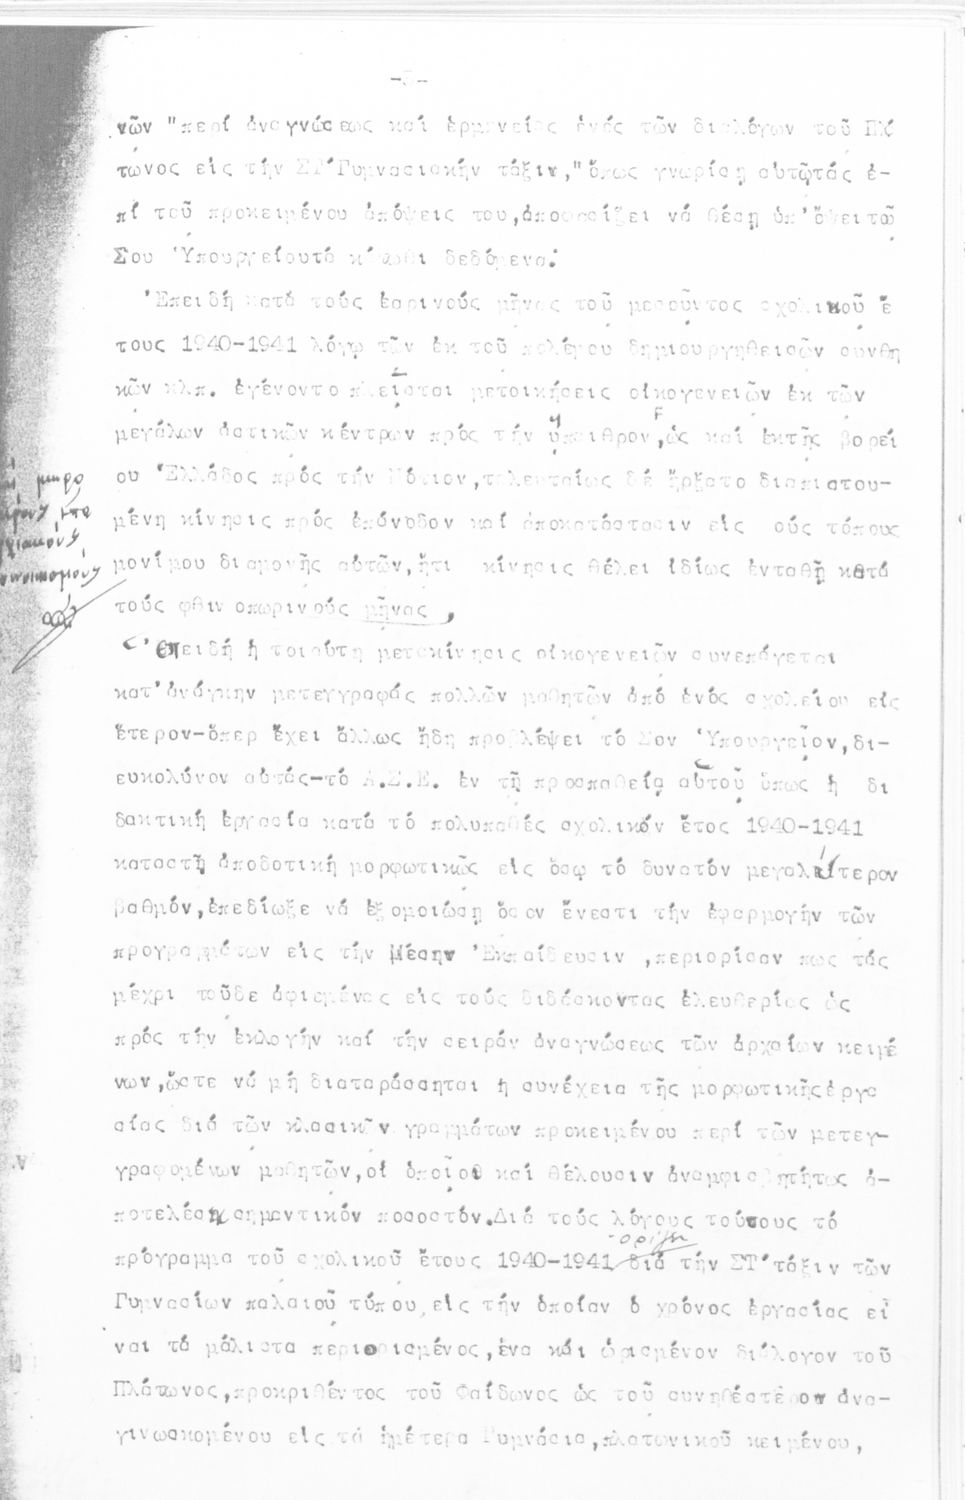 -5-
νῶν "περί ἀναγνώσεως καί ἑρμηνείας ἑνός τῶν διαλόγων τοῦ Πλά
τωνος εἰς τήν ΣΤ΄Γυμνασιακήν τάξιν,"ὅπως γνωρίσῃ αὐτῷτάς ἐ-
πί τοῦ προκειμένου ἀπόψεις του,ἀποφασίζει νά θέσῃ ὑπ'ὄψει τῶ
Σου Ὑπουργείουτά κάτωθι δεδόμενα:
Ἐπειδή κατά τούς ἐαρινούς μῆνας τοῦ μεσοῦντος σχολικοῦ ἔ
τους 1940-1941 λόγῳ τῶν ἐκ τοῦ πολέμου δημιουργηθεισῶν συνθη
κῶν κλπ. ἐγένοντο πλεῖσται μετοικήσεις οἰκογενειῶν ἐκ τῶν
μεγάλων ἀστικῶν κέντρων πρός τήν ὕπαιθρον,ὡς καί ἐκτῆς βορεί
ου Ἑλλάδος πρός τήν Νότιον,τελευταίως δέ ἤρξατο διαπιστου-
μένη κίνησις πρός ἐπάνοδον καί ἀποκατάστασιν εἰς οὕς τόπους
μονίμου διαμονῆς αὐτῶν,ἥτι κίνησις θέλει ἰδίως ἐνταθῇ κατά
τούς φθινοπωρινούς μῆνας,
Ἐπειδή ἡ τοιαύτη μετακίνησις οἰκογενειῶν συνεπάγεται
κατ'ἀνάγκην μετεγγραφάς πολλῶν μαθητῶν ἀπό ἑνός σχολείου εἰς
ἕτερον-ὅπερ ἔχει ἄλλως ἤδη προβλέψει τό Σον Ὑπουργεῖον,δι-
ευκολύνον αὐτάς-τό Α.Σ.Ε. ἐν τῇ προσπαθείᾳ αὐτοῦ ὅπως ἡ δι
δακτική ἐργασία κατά τό πολυπαθές σχολικόν ἔτος 1940-1941
καταστῇ ἀποδοτική μορφωτικῶς εἰς ὅσῳ τό δυνατόν μεγαλείτερον
βαθμόν,ἐπεδίωξε νά ἐξομοιώσῃ ὅσον ἔνεστι τήν ἐφαρμογήν τῶν
προγραμμάτων εἰς τήν Μέσην Ἐκπαίδευσιν ,περιορίσαν πως τάς
μέχρι τοῦδε ἀφιεμένας εἰς τούς διδάσκοντας ἐλευθερίας ὡς
πρός τήν ἐκλογήν καί τήν σειράν ἀναγνώσεως τῶν ἀρχαίων κειμέ
νων,ὥστε νά μή διαταράσσηται ἡ συνέχεια τῆς μορφωτικῆςἐργα
σίας διά τῶν κλασικῶν γραμμάτων προκειμένου περί τῶν μετεγ-
γραφομένων μαθητῶν,οἱ ὁποῖοι καί θέλουσιν ἀναμφισβητήτως ἀ-
ποτελέσῃ σημαντικόν ποσοστόν.Διά τούς λόγους τούτους τό
ορίζει
πρόγραμμα τοῦ σχολικοῦ ἔτους 1940-1941 διά τήν ΣΤ΄τάξιν τῶν
Γυμνασίων παλαιοῦ τύπου,εἰς τήν ὁποίαν ὁ χρόνος ἐργασίας εἶ
ναι τά μάλιστα περιορισμένος,ἕνα κάι ὡρισμένον διάλογον τοῦ
Πλάτωνος,προκριθέντος τοῦ Φαίδωνος ὡς τοῦ συνηθέστερον ἀνα-
γινωσκομένου εἰς τά ἡμέτερα Γυμνάσια,πλατωνικοῦ κειμένου,